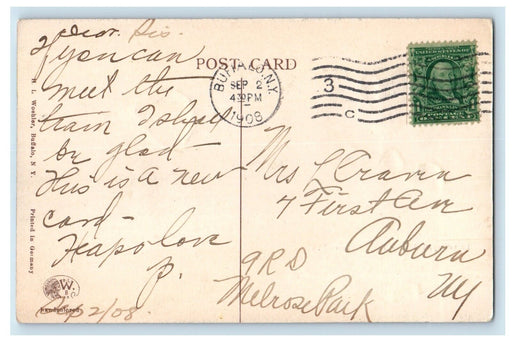 Dear Sis.
If you can
meet the
train I shall
be glad -
This is a new
card -
Heaps love
P.
Sep 2/08.
POST CARD
BUFFALO, N.Y.
SEP 2
4:30 PM
1908
3
C
Mrs L Craven
4 First Ave
Auburn
NY
9 R D
Melrose Park
H. L. Woehler, Buffalo, N. Y.
Printed in Germany
W.
Handcolored